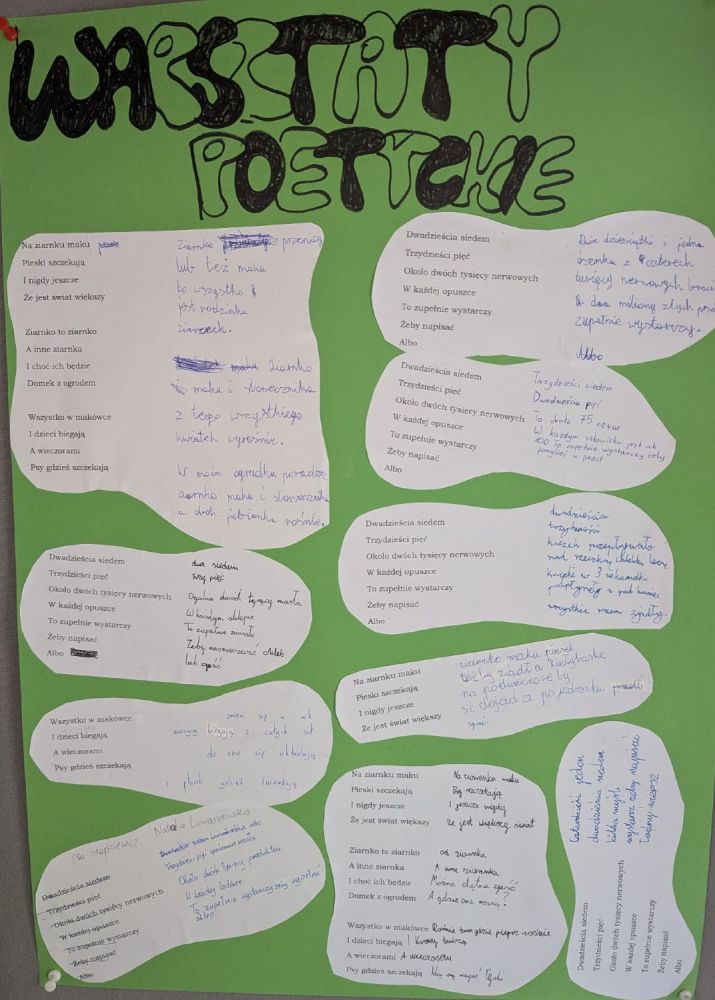 WARSZTATY
POETYCKIE
Na ziarnku maku
Pieski szczekają
I nigdy jeszcze
Że jest świat większy
Ziarnko to ziarnko
A inne ziarnka
I choć ich będzie
Domek z ogrodem
Wszystko w makówce
I dzieci biegają
A wieczorami
Psy gdzieś szczekają
Ziarnko przenieś
lub też maku
to wszystko
jest rodzinka
ziarnek.
maku Ziarnko
maku i słonecznika
z tego wszystkiego
kwiatek wyrośnie.
W moim ogródku posadzę
ziarnko maku i słonecznika
a obok jabłonka rośnie.
Dwadzieścia siedem
Trzydzieści pięć
Około dwóch tysięcy nerwowych
W każdej opuszce
To zupełnie wystarczy
Żeby napisać
Albo
Dwie dziesiątki i jedna
ósemka z czterech
tysięcy nerwowych braci
dwa miliony złych
zupełnie wystarczy.
Albo
Dwadzieścia siedem
Trzydzieści pięć
Około dwóch tysięcy nerwowych
W każdej opuszce
To zupełnie wystarczy
Żeby napisać
Albo
Trzydzieści siedem
Dwadzieścia pięć
To około 75 nerw
W każdym człowieku jest ich
200 To zupełnie wystarczy żeby
pomyśleć w
Dwadzieścia siedem
Trzydzieści pięć
Około dwóch tysięcy nerwowych
W każdej opuszce
To zupełnie wystarczy
Żeby napisać
Albo
dwa siedem
Trzy pięć
Ogólnie dwóch tysięcy masła
W każdym sklepie
To zupełnie
Żeby chleb
lub
Dwadzieścia siedem
Trzydzieści pięć
Około dwóch tysięcy nerwowych
W każdej opuszce
To zupełnie wystarczy
Żeby napisać
Albo
dwadzieścia
trzydzieści
kaczek przepływało
nad rzeczką
w 3 sekundki
nad koniec
wszystkie razem
Na ziarnku maku
Pieski szczekają
I nigdy jeszcze
Że jest świat większy
ziarnko maku piesek
też by zjadł a kiełbaskę
na podwieczorek by
się dojadał po jedzonku poszedł
spać.
Wszystko w makówce
I dzieci biegają
A wieczorami
Psy gdzieś szczekają
zmieni się w mak
wszyscy biegają z całych sił
do snu się układają
i ptaki gdzieś ćwierkają
Natalia
Dwadzieścia siedem
Trzydzieści pięć
Około dwóch tysięcy nerwowych
W każdej opuszce
To zupełnie wystarczy
Żeby napisać
Albo
Dwadzieścia siedem albo
Trzydzieści pięć masła
Około dwóch tysięcy produktów
W każdej lodówce
To zupełnie wystarczy żeby wypełnić
sklep
Na ziarnku maku
Pieski szczekają
I nigdy jeszcze
Że jest świat większy
Ziarnko to ziarnko
A inne ziarnka
I choć ich będzie
Domek z ogrodem
Wszystko w makówce
I dzieci biegają
A wieczorami
Psy gdzieś szczekają
Na ziarenku maku
Psy szczekają
I jeszcze nigdy
Że jest większy świat
od ziarnka
A inne ziarenka
Można chętnie zjeść
A gdzie one rosną?
Rośnie tam gdzie pieprz rośnie
A wieczorem
Dwadzieścia siedem
Trzydzieści pięć
Około dwóch tysięcy nerwowych
W każdej opuszce
To zupełnie wystarczy
Żeby napisać
Albo
czterdzieści jeden
dwadzieścia siedem
kilka myśli
wystarczy żeby napisać
wiersz